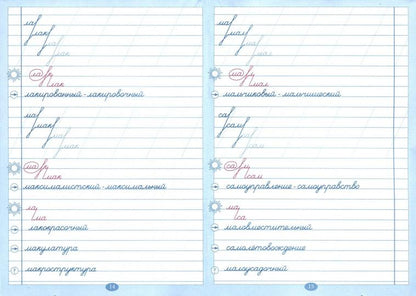 ла
лак
ла
лак
ла
лак
лакированный - лакировочный
ма
мак
ма
мак
ма
мак
максималистский - максимальный
ла
ма
лакокрасочный
макулатура
макроструктура
14
ма
мал
ма
мал
ма
мал
мальчиковый - мальчишеский
са
сам
са
сам
са
сам
самоуправление - самоуправство
ма
са
маловместительный
самолётовождение
малоусадочный
15